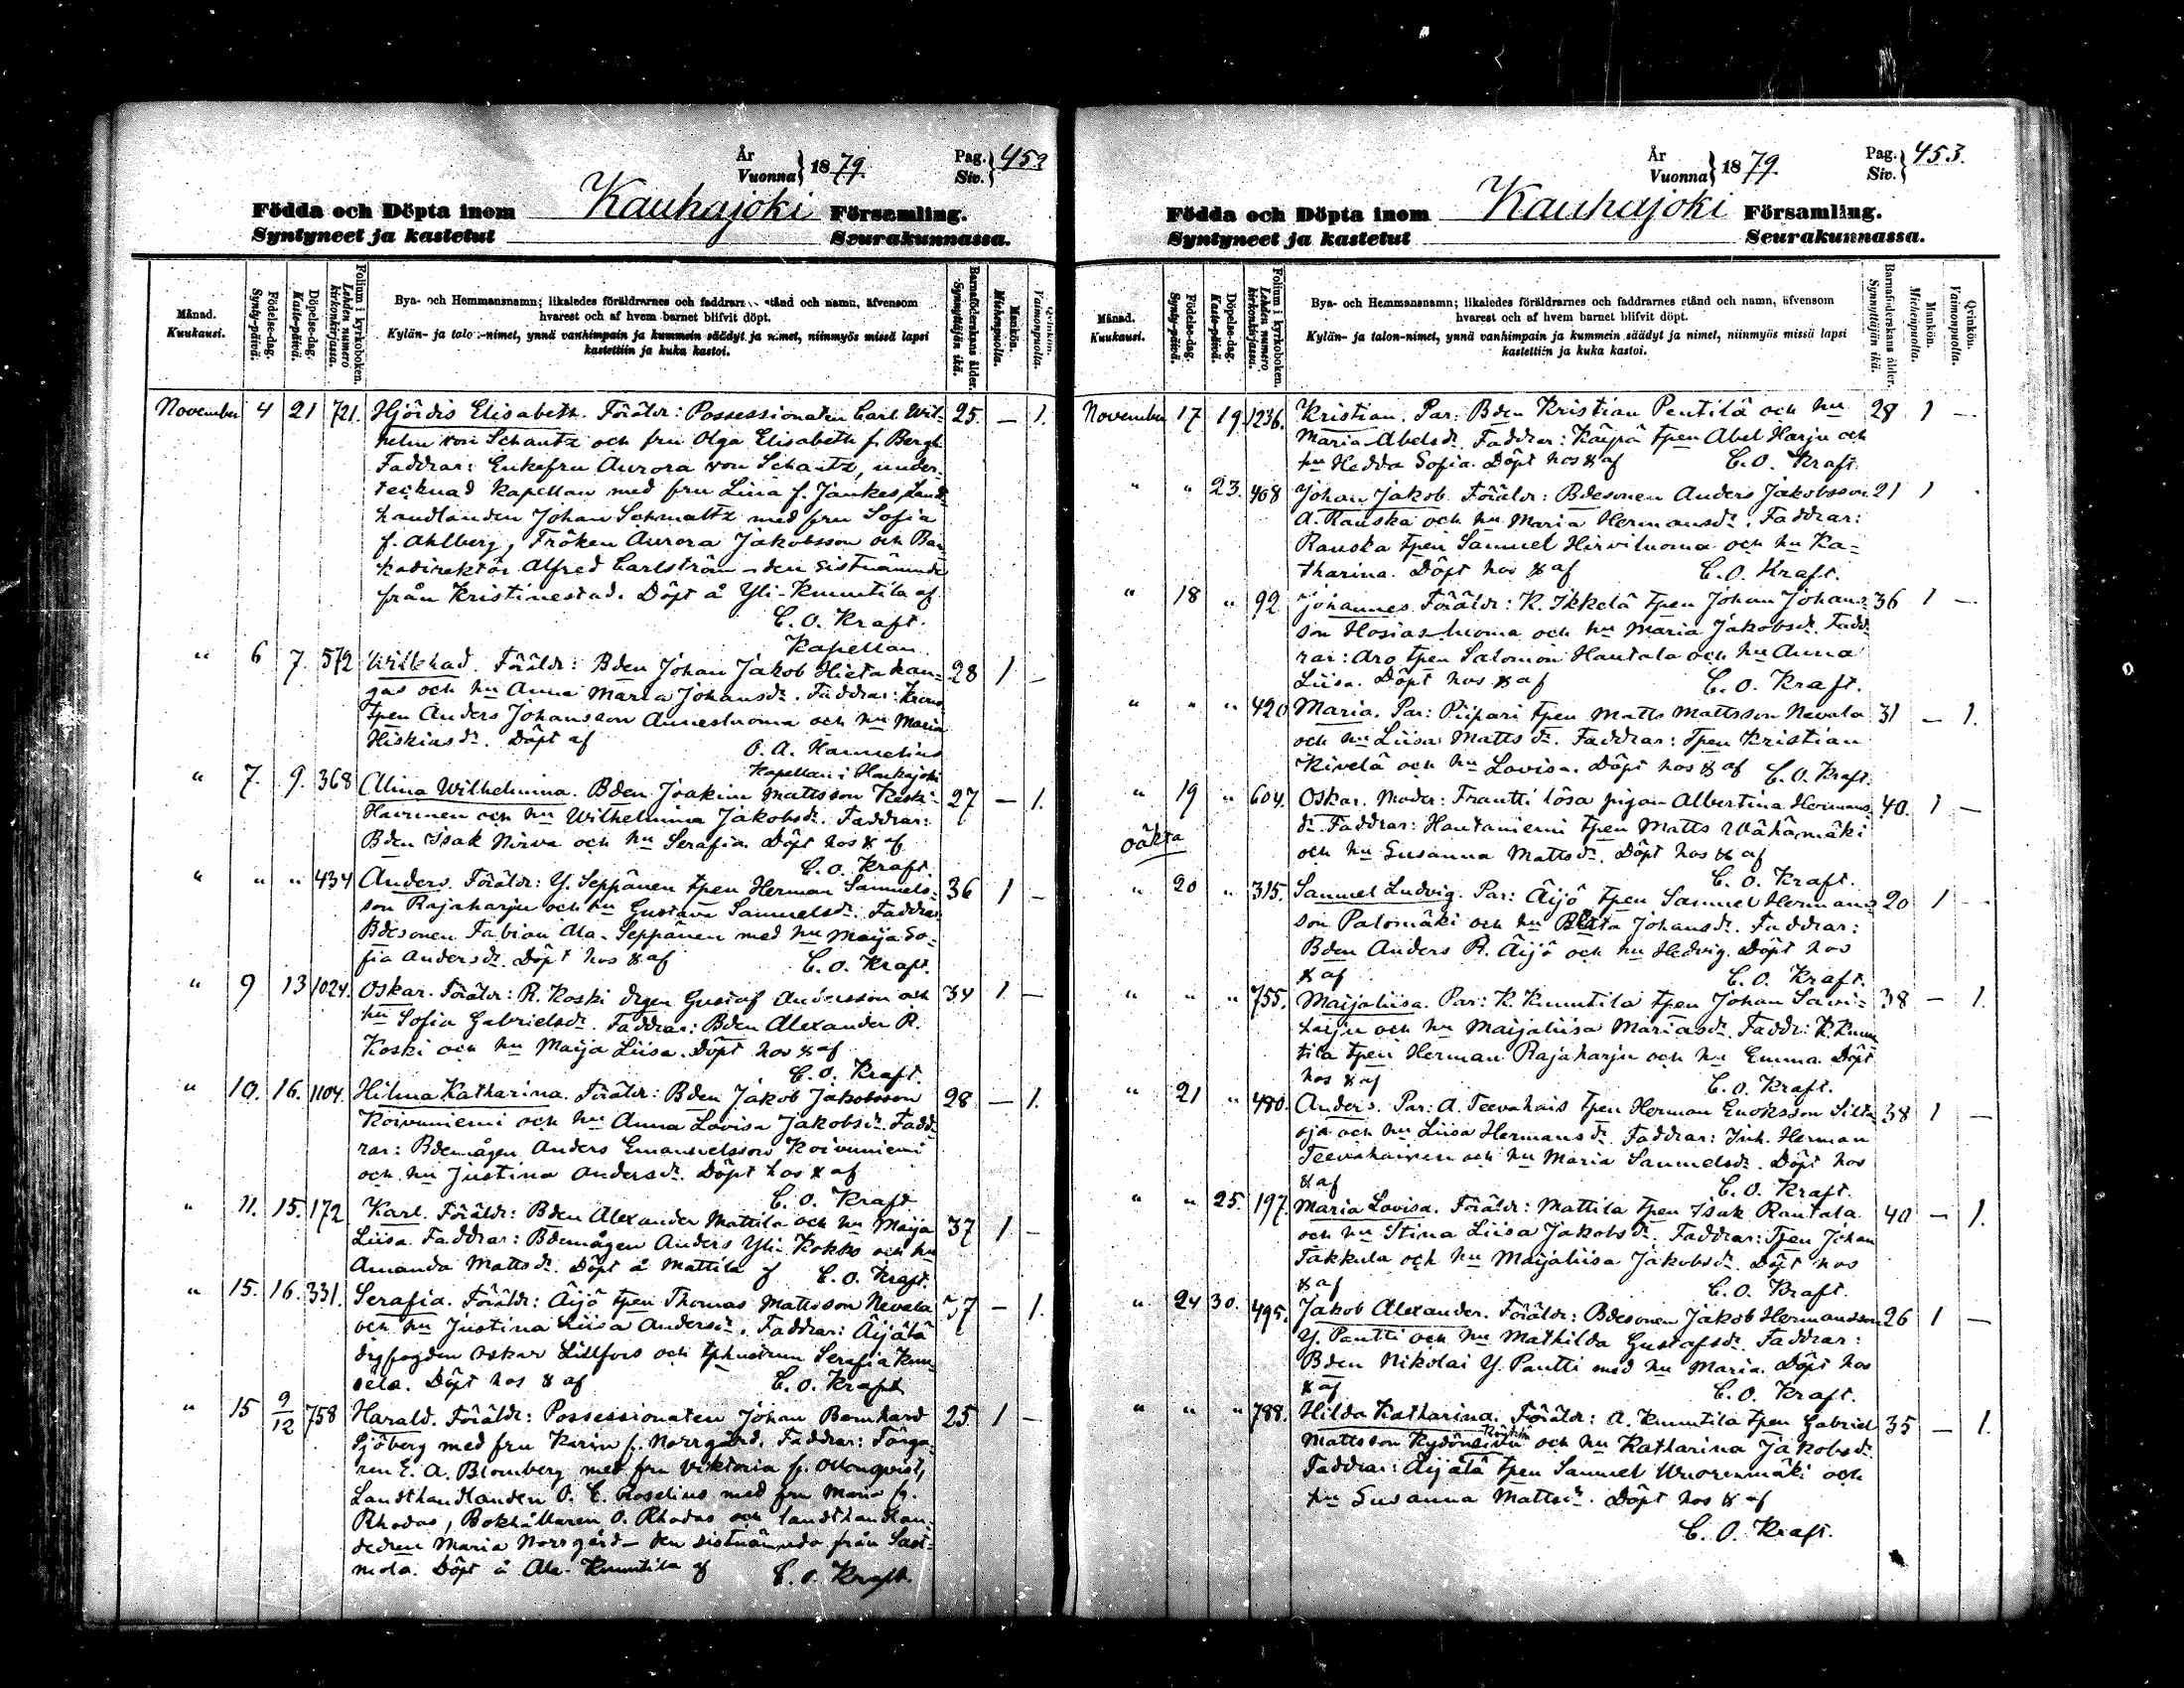 År
Vuonna } 1879.
Pag.
Siv. } 452
Födda och Döpta inom Kauhajoki Församling.
Syntyneet ja kastetut Seurakunnassa.
Månad.
Kuukausi.
Födelse-dag.
Synty-päivä.
Döpelse-dag.
Kaste-päivä.
Folium i kyrkoboken.
Lehden numero kirkonkirjassa.
Bya- och Hemmansnamn; likaledes föräldrarnes och faddrarnes stånd och namn, äfvensom
hvarest och af hvem barnet blifvit döpt.
Kylän- ja talon-nimet, ynnä vanhimpain ja kummein säädyt ja nimet, niinmyös missä lapsi
kastettiin ja kuka kastoi.
Barnaföderskans ålder.
Synnyttäjän ikä.
Mankön.
Miehenpuolta.
Qvinkön.
Vaimonpuolta.
November 4 21 721. Hjördis Elisabeth. Föräldr: Possessionaten Carl Wil- 25. — 1.
helm von Schantz och fru Olga Elisabeth f. Bergh
Faddrar: Enkefru Aurora von Schantz, under-
tecknad Kapellan med fru Lina f. Jankes, Land-
handlanden Johan Schmaltz med fru Sofia
f. Ahlberg, Fröken Aurora Jakobsson och Ban-
kodirektör Alfred Carlström – den sistnämnde
från Kristinestad. Döpt å Yli-Knuutila af
C. O. Kraft.
Kapellan.
" 6 7. 572 Willehad. Föräldr: Bden Johan Jakob Hietakan- 28 1 —
gas och hu Anna Maria Johansdr. Faddrar:
tpen Anders Johansson Annesluoma och hu Maria
Hiskiasdr. Döpt af O. A. Hannelius
Kapellan i
" 7. 9. 368 Alina Wilhelmina. Bden Joakim Mattsson Keski- 27 — 1.
Hairinen och hu Wilhelmina Jakobsdr. Faddrar:
Bden Isak Nirva och hu Serafia. Döpt hos & af
C. O. Kraft.
" " " 434 Anders. Föräldr: Y. Seppänen tpen Herman Samuels- 36 1 —
son Rajaharju och hu Gustava Samuelsdr. Faddrar
Bdesonen Fabian Ala-Seppänen med hu Maija So-
fia Andersdr. Döpt hos & af C. O. Kraft.
" 9 13 1024. Oskar. Föräldr: R. Koski drgen Gustaf Andersson och 34 1 —
hu Sofia Gabrielsdr. Faddrar: Bden Alexander R.
Koski och hu Maija Liisa. Döpt hos & af
C. O. Kraft.
" 10. 16. 1104. Hilma Katharina. Föräldr: Bden Jakob Jakobsson 28 — 1.
Koivuniemi och hu Anna Lovisa Jakobsdr. Fadd-
rar: Bdemågen Anders Emanuelsson Koivuniemi
och hu Justina Andersdr. Döpt hos & af
C. O. Kraft
" 11. 15. 172 Karl. Föräldr: Bden Alexander Mattila och hu Maija 37 1 —
Liisa. Faddrar: Bdemågen Anders Yli-Kokko och hu
Amanda Mattsdr. Döpt å Mattila af C. O. Kraft.
" 15. 16. 331. Serafia. Föräldr: Äijö tpen Thomas Mattsson Nevala 37 — 1.
och hu Justina Liisa Andersdr. Faddrar: Äijälä
drgfogden Oskar Lillfors och tphustrun Serafia
sela. Döpt hos & af C. O. Kraft
" 15 9/12 758 Harald. Föräldr: Possessionaten Johan Bernhard 25 1 —
Sjöberg med fru Karin f. Norrgård. Faddrar: Färga-
ren E. A. Blomberg med fru Viktoria f.
Landthandlanden O. E. Roselius med fru Maria f.
Rhodas, Bokhållaren O. Rhodas och landthandlan-
dedren Maria Norrgård – den sistnämnda från Sast-
mola. Döpt å Ala-Knuutila af C. O. Kraft.
År
Vuonna } 1879.
Pag.
Siv. } 453.
Födda och Döpta inom Kauhajoki Församling.
Syntyneet ja kastetut Seurakunnassa.
Månad.
Kuukausi.
Födelse-dag.
Synty-päivä.
Döpelse-dag.
Kaste-päivä.
Folium i kyrkoboken.
Lehden numero kirkonkirjassa.
Bya- och Hemmansnamn; likaledes föräldrarnes och faddrarnes stånd och namn, äfvensom
hvarest och af hvem barnet blifvit döpt.
Kylän- ja talon-nimet, ynnä vanhimpain ja kummein säädyt ja nimet, niinmyös missä lapsi
kastettiin ja kuka kastoi.
Barnaföderskans ålder.
Synnyttäjän ikä.
Mankön.
Miehenpuolta.
Qvinkön.
Vaimonpuolta.
November 17 19. 1236. Kristian. Par: Bden Kristian Pentilä och hu 28 1 —
Maria Abelsdr. Faddrar: Käypä tpen Abel Harju och
hu Hedda Sofia. Döpt hos & af C. O. Kraft.
" " 23. 408 Johan Jakob. Föräldr: Bdesonen Anders Jakobsson 21 1
A. Rauska och hu Maria Hermansdr. Faddrar:
Rauska tpen Samuel Hirviluoma och hu Ka-
tharina. Döpt hos & af C. O. Kraft.
" 18 " 92 Johannes. Föräldr: K. Ikkelä tpen Johan Johans- 36 1 —
son Hosiasluoma och hu Maria Jakobsdr. Fadd-
rar: Aro tpen Salomon Hautala och hu Anna
Liisa. Döpt hos & af C. O. Kraft.
" " " 420 Maria. Par: Piipari tpen Matts Mattsson Nevala 31 — 1.
och hu Liisa Mattsdr. Faddrar: Tpen Kristian
Kivelä och hu Lovisa. Döpt hos & af C. O. Kraft.
" 19 " 604. Oskar. Moder: Frantti lösa pigan Albertina Hermans- 40. 1 —
oäkta
dr. Faddrar: Hautaniemi tpen Matts Wähämäki
och hu Susanna Mattsdr. Döpt hos & af
C. O. Kraft.
" 20 " 315. Samuel Ludvig. Par: Äijö tpen Samuel Hermans- 20 1 —
son Palomäki och hu Beata Johansdr. Faddrar:
Bden Anders R. Äijö och hu Hedvig. Döpt hos
& af C. O. Kraft.
" " " 755. Maijaliisa. Par: K. Knuutila tpen Johan Savi- 38 — 1.
harju och hu Maijaliisa Mariasdr. Faddr: K. Knuu
tila tpen Herman Rajaharju och hu Emma. Döpt
hos & af C. O. Kraft.
" 21 " 480. Anders. Par: A. Teevahais tpen Herman Enoksson Silta- 38 1 —
oja och hu Liisa Hermansdr. Faddrar: Inh. Herman
Teevahainen och hu Maria Samuelsdr. Döpt hos
& af C. O. Kraft.
" " 25. 197. Maria Lovisa. Föräldr: Mattila tpen Isak Rantala 40 — 1.
och hu Stina Liisa Jakobsdr. Faddrar: Tpen Johan
Takkula och hu Maijaliisa Jakobsdr. Döpt hos
& af C. O. Kraft.
" 24 30. 495. Jakob Alexander. Föräldr: Bdesonen Jakob Hermansson 26 1 —
Y. Pantti och hu Mathilda Gustafsdr. Faddrar:
Bden Nikolai Y. Pantti med hu Maria. Döpt hos
& af C. O. Kraft.
" " " 788. Hilda Katharina. Föräldr: A. Knuutila tpen Gabriel 35 — 1.
Mattsson och hu Katharina Jakobsdr.
Faddrar: Äijälä tpen Samuel Wuorenmäki och
hu Susanna Mattsdr. Döpt hos & af
C. O. Kraft.